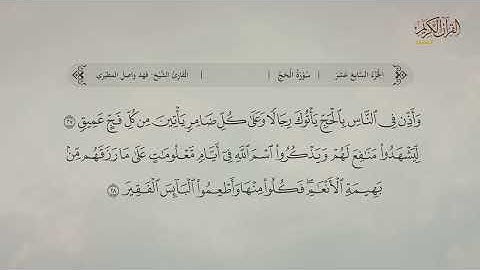 القرآن الكريم
الجُزءُ السَّابِعَ عَشَرَ | سُورَةُ الحَجِّ | القَارِئُ الشَّيْخُ: فهد واصل المطيري
وَأَذِّن فِي ٱلنَّاسِ بِٱلْحَجِّ يَأْتُوكَ رِجَالًا وَعَلَىٰ كُلِّ ضَامِرٍ يَأْتِينَ مِن كُلِّ فَجٍّ عَمِيقٍ ٢٧
لِّيَشْهَدُوا۟ مَنَٰفِعَ لَهُمْ وَيَذْكُرُوا۟ ٱسْمَ ٱللَّهِ فِىٓ أَيَّامٍ مَّعْلُومَٰتٍ عَلَىٰ مَا رَزَقَهُم مِّنۢ
بَهِيمَةِ ٱلْأَنْعَٰمِ ۖ فَكُلُوا۟ مِنْهَا وَأَطْعِمُوا۟ ٱلْبَآئِسَ ٱلْفَقِيرَ ٢٨